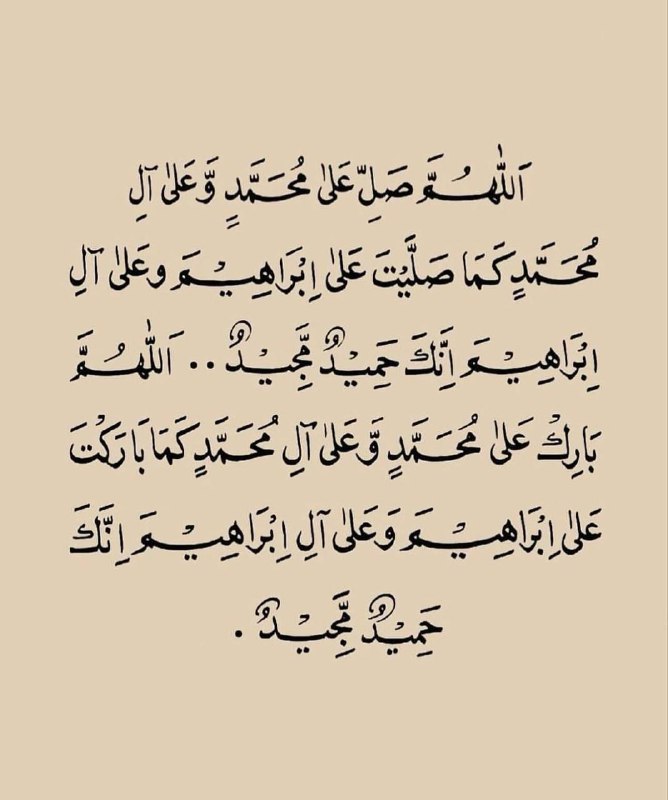 اَللّٰهُمَّ صَلِّ عَلٰى مُحَمَّدٍ وَّعَلٰى آلِ
مُحَمَّدٍ كَمَا صَلَّيْتَ عَلٰى اِبْرَاهِيْمَ وعَلٰى آلِ
اِبْرَاهِيْمَ اِنَّكَ حَمِيْدٌ مَّجِيْدٌ .. اَللّٰهُمَّ
بَارِكْ عَلٰى مُحَمَّدٍ وَّعَلٰى آلِ مُحَمَّدٍ كَمَا بَارَكْتَ
عَلٰى اِبْرَاهِيْمَ وَعَلٰى آلِ اِبْرَاهِيْمَ اِنَّكَ
حَمِيْدٌ مَّجِيْدٌ .